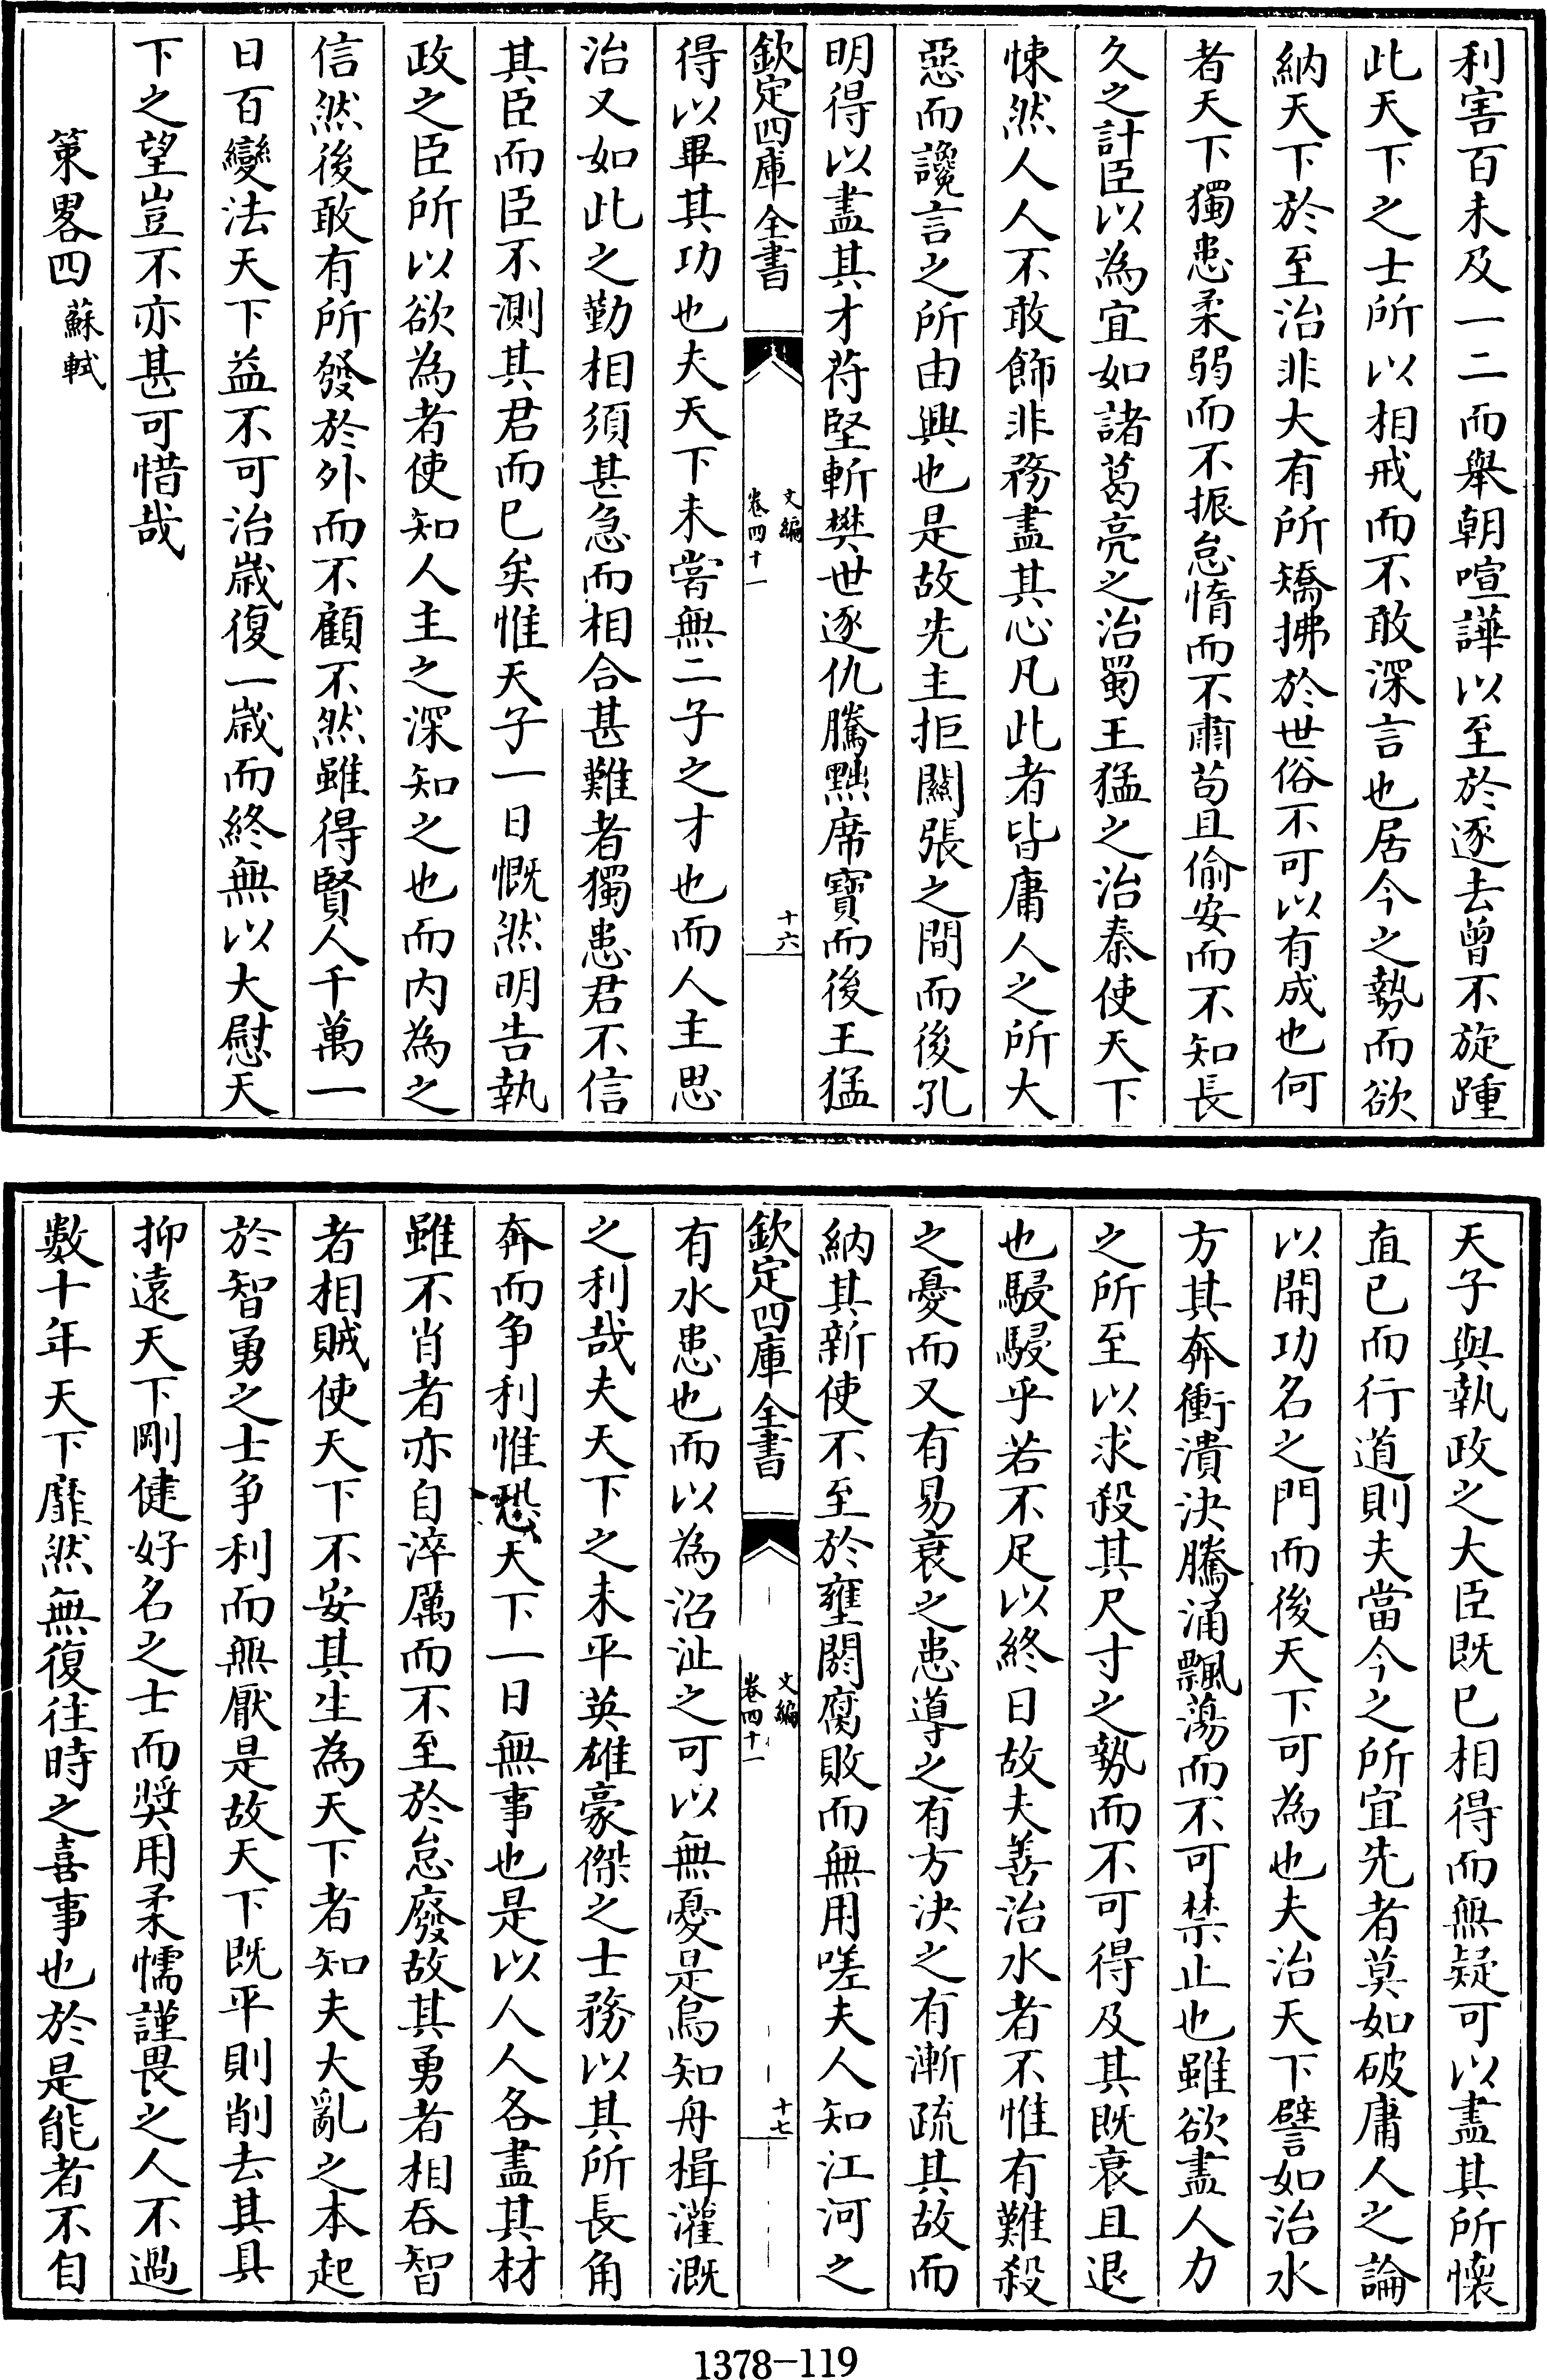 利害百未及一二而舉朝喧譁以至於逐去曾不旋踵
此天下之士所以相戒而不敢深言也居今之勢而欲
納天下於至治非大有所矯拂於世俗不可以有成也何
者天下獨患柔弱而不振怠惰而不肅苟且偷安而不知長
久之計臣以為宜如諸葛亮之治蜀王猛之治秦使天下
悚然人人不敢飾非務盡其心凡此者皆庸人之所大
惡而讒言之所由興也是故先主拒關張之間而後孔
明得以盡其才苻堅斬樊世逐仇騰黜席寶而後王猛
欽定四庫全書
文編
卷四十一
十六
得以畢其功也夫天下未嘗無二子之才也而人主思
治又如此之勤相須甚急而相合甚難者獨患君不信
其臣而臣不測其君而已矣惟天子一日慨然明告執
政之臣所以欲為者使知人主之深知之也而內為之
信然後敢有所發於外而不顧不然雖得賢人千萬一
日百變法天下益不可治歲復一歲而終無以大慰天
下之望豈不亦甚可惜哉
策畧四 蘇軾
天子與執政之大臣既已相得而無疑可以盡其所懷
直已而行道則夫當今之所宜先者莫如破庸人之論
以開功名之門而後天下可為也夫治天下譬如治水
方其奔衝潰決騰涌飄蕩而不可禁止也雖欲盡人力
之所至以求殺其尺寸之勢而不可得及其既衰且退
也駸駸乎若不足以終日故夫善治水者不惟有難殺
之憂而又有易衰之患導之有方決之有漸疏其故而
納其新使不至於壅閼腐敗而無用嗟夫人知江河之
欽定四庫全書
文編
卷四十一
十七
有水患也而以為沼沚之可以無憂是烏知舟楫灌溉
之利哉夫天下之未平英雄豪傑之士務以其所長角
奔而争利惟恐天下一日無事也是以人人各盡其材
雖不肖者亦自淬厲而不至於怠廢故其勇者相吞智
者相賊使天下不安其生為天下者知夫大亂之本起
於智勇之士争利而無厭是故天下既平則削去其具
抑遠天下剛健好名之士而奬用柔懦謹畏之人不過
數十年天下靡然無復往時之喜事也於是能者不自
1378-119